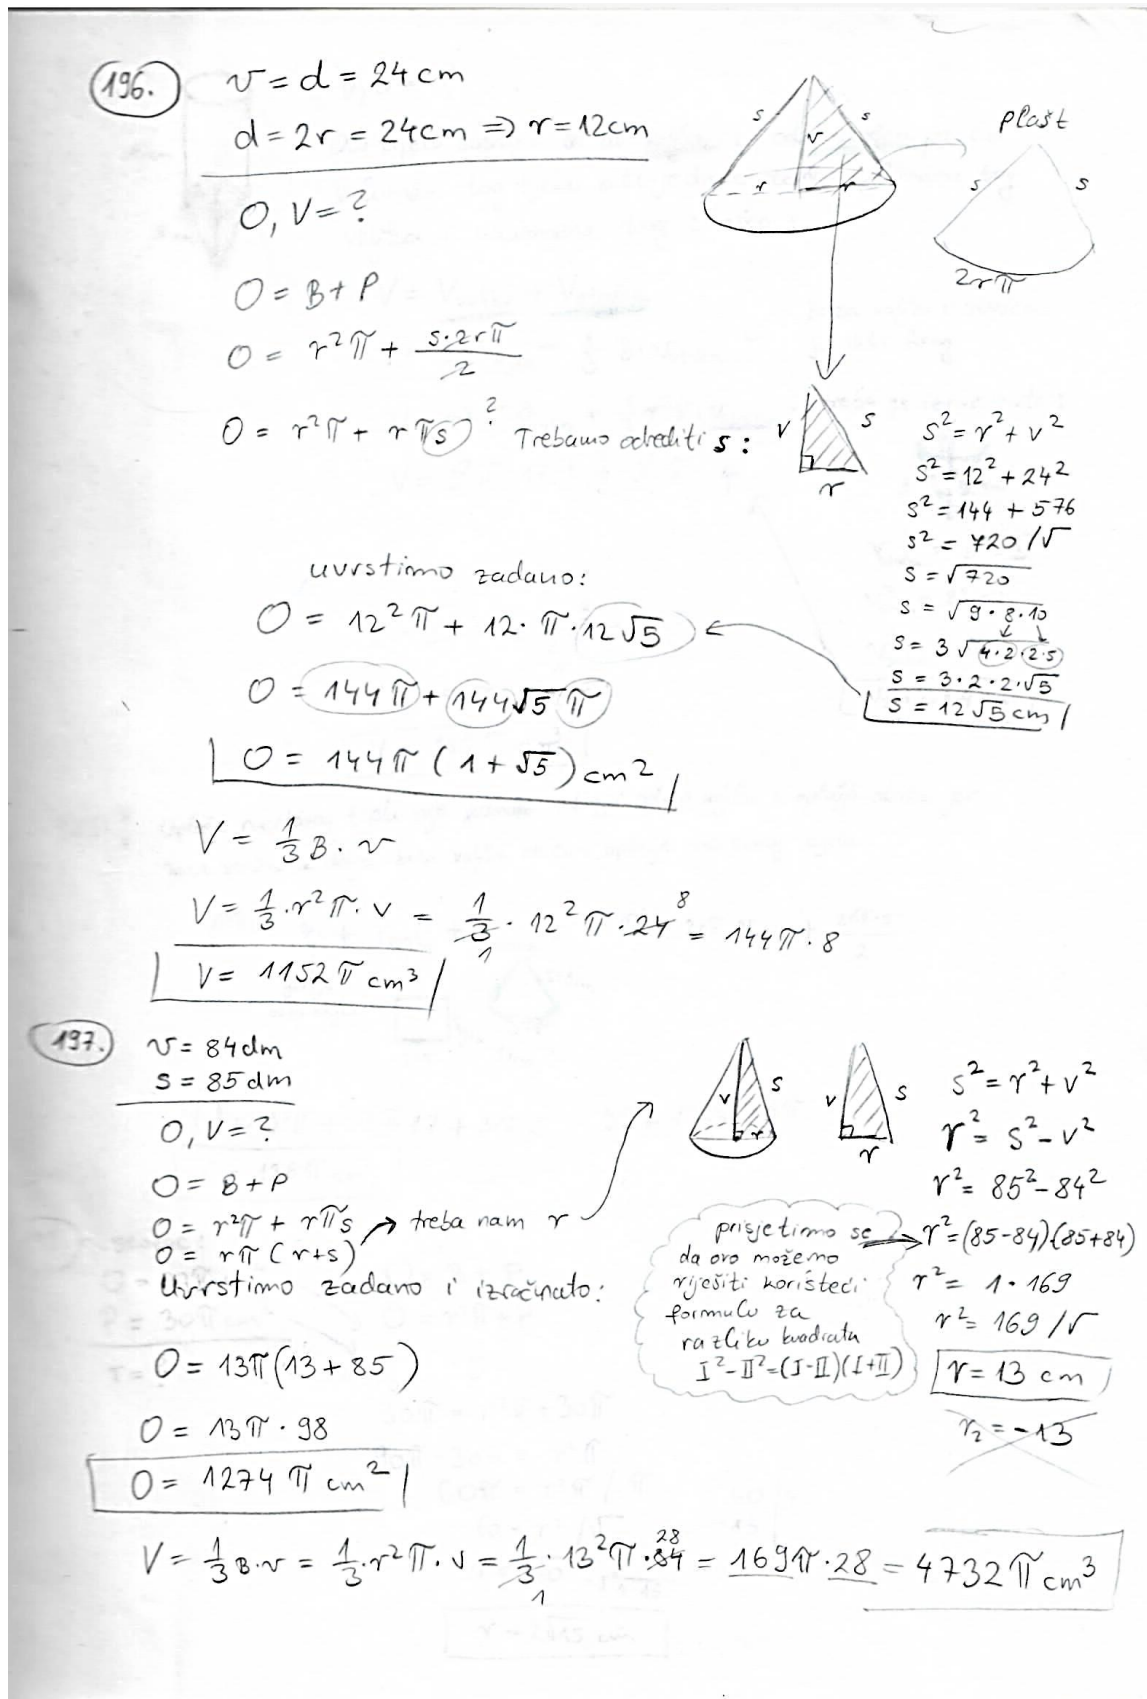 196.
v = d = 24 cm
d = 2r = 24cm ⇒ r = 12cm
O, V = ?
O = B + P
O = r²π + s·2rπ/2
O = r²π + rπs ? Trebamo odrediti s:
s s v r r
plašt
s s
2rπ
v s r
s² = r² + v²
s² = 12² + 24²
s² = 144 + 576
s² = 720 /√
s = √720
s = √9·8·10
s = 3√4·2·2·5
s = 3·2·2·√5
s = 12√5 cm
uvrstimo zadano:
O = 12²π + 12·π·12√5
O = 144π + 144√5π
O = 144π(1+√5) cm²
V = 1/3 B·v
V = 1/3·r²π·v = 1/3·12²π·24 = 144π·8
1 8
V = 1152π cm³
197.
v = 84dm
s = 85dm
O, V = ?
O = B + P
O = r²π + rπs → treba nam r
O = rπ(r+s)
Uvrstimo zadano i izračunato:
O = 13π(13 + 85)
O = 13π·98
O = 1274π cm²
v s r
v s r
s² = r² + v²
r² = s² - v²
r² = 85² - 84²
r² = (85-84)(85+84)
r² = 1·169
r² = 169 /√
r = 13 cm
r₂ = -13
prisjetimo se
da ovo možemo
riješiti koristeći
formulu za
razliku kvadrata
I²-II²=(I-II)(I+II)
V = 1/3 B·v = 1/3·r²π·v = 1/3·13²π·84 = 169π·28 = 4732π cm³
1 28